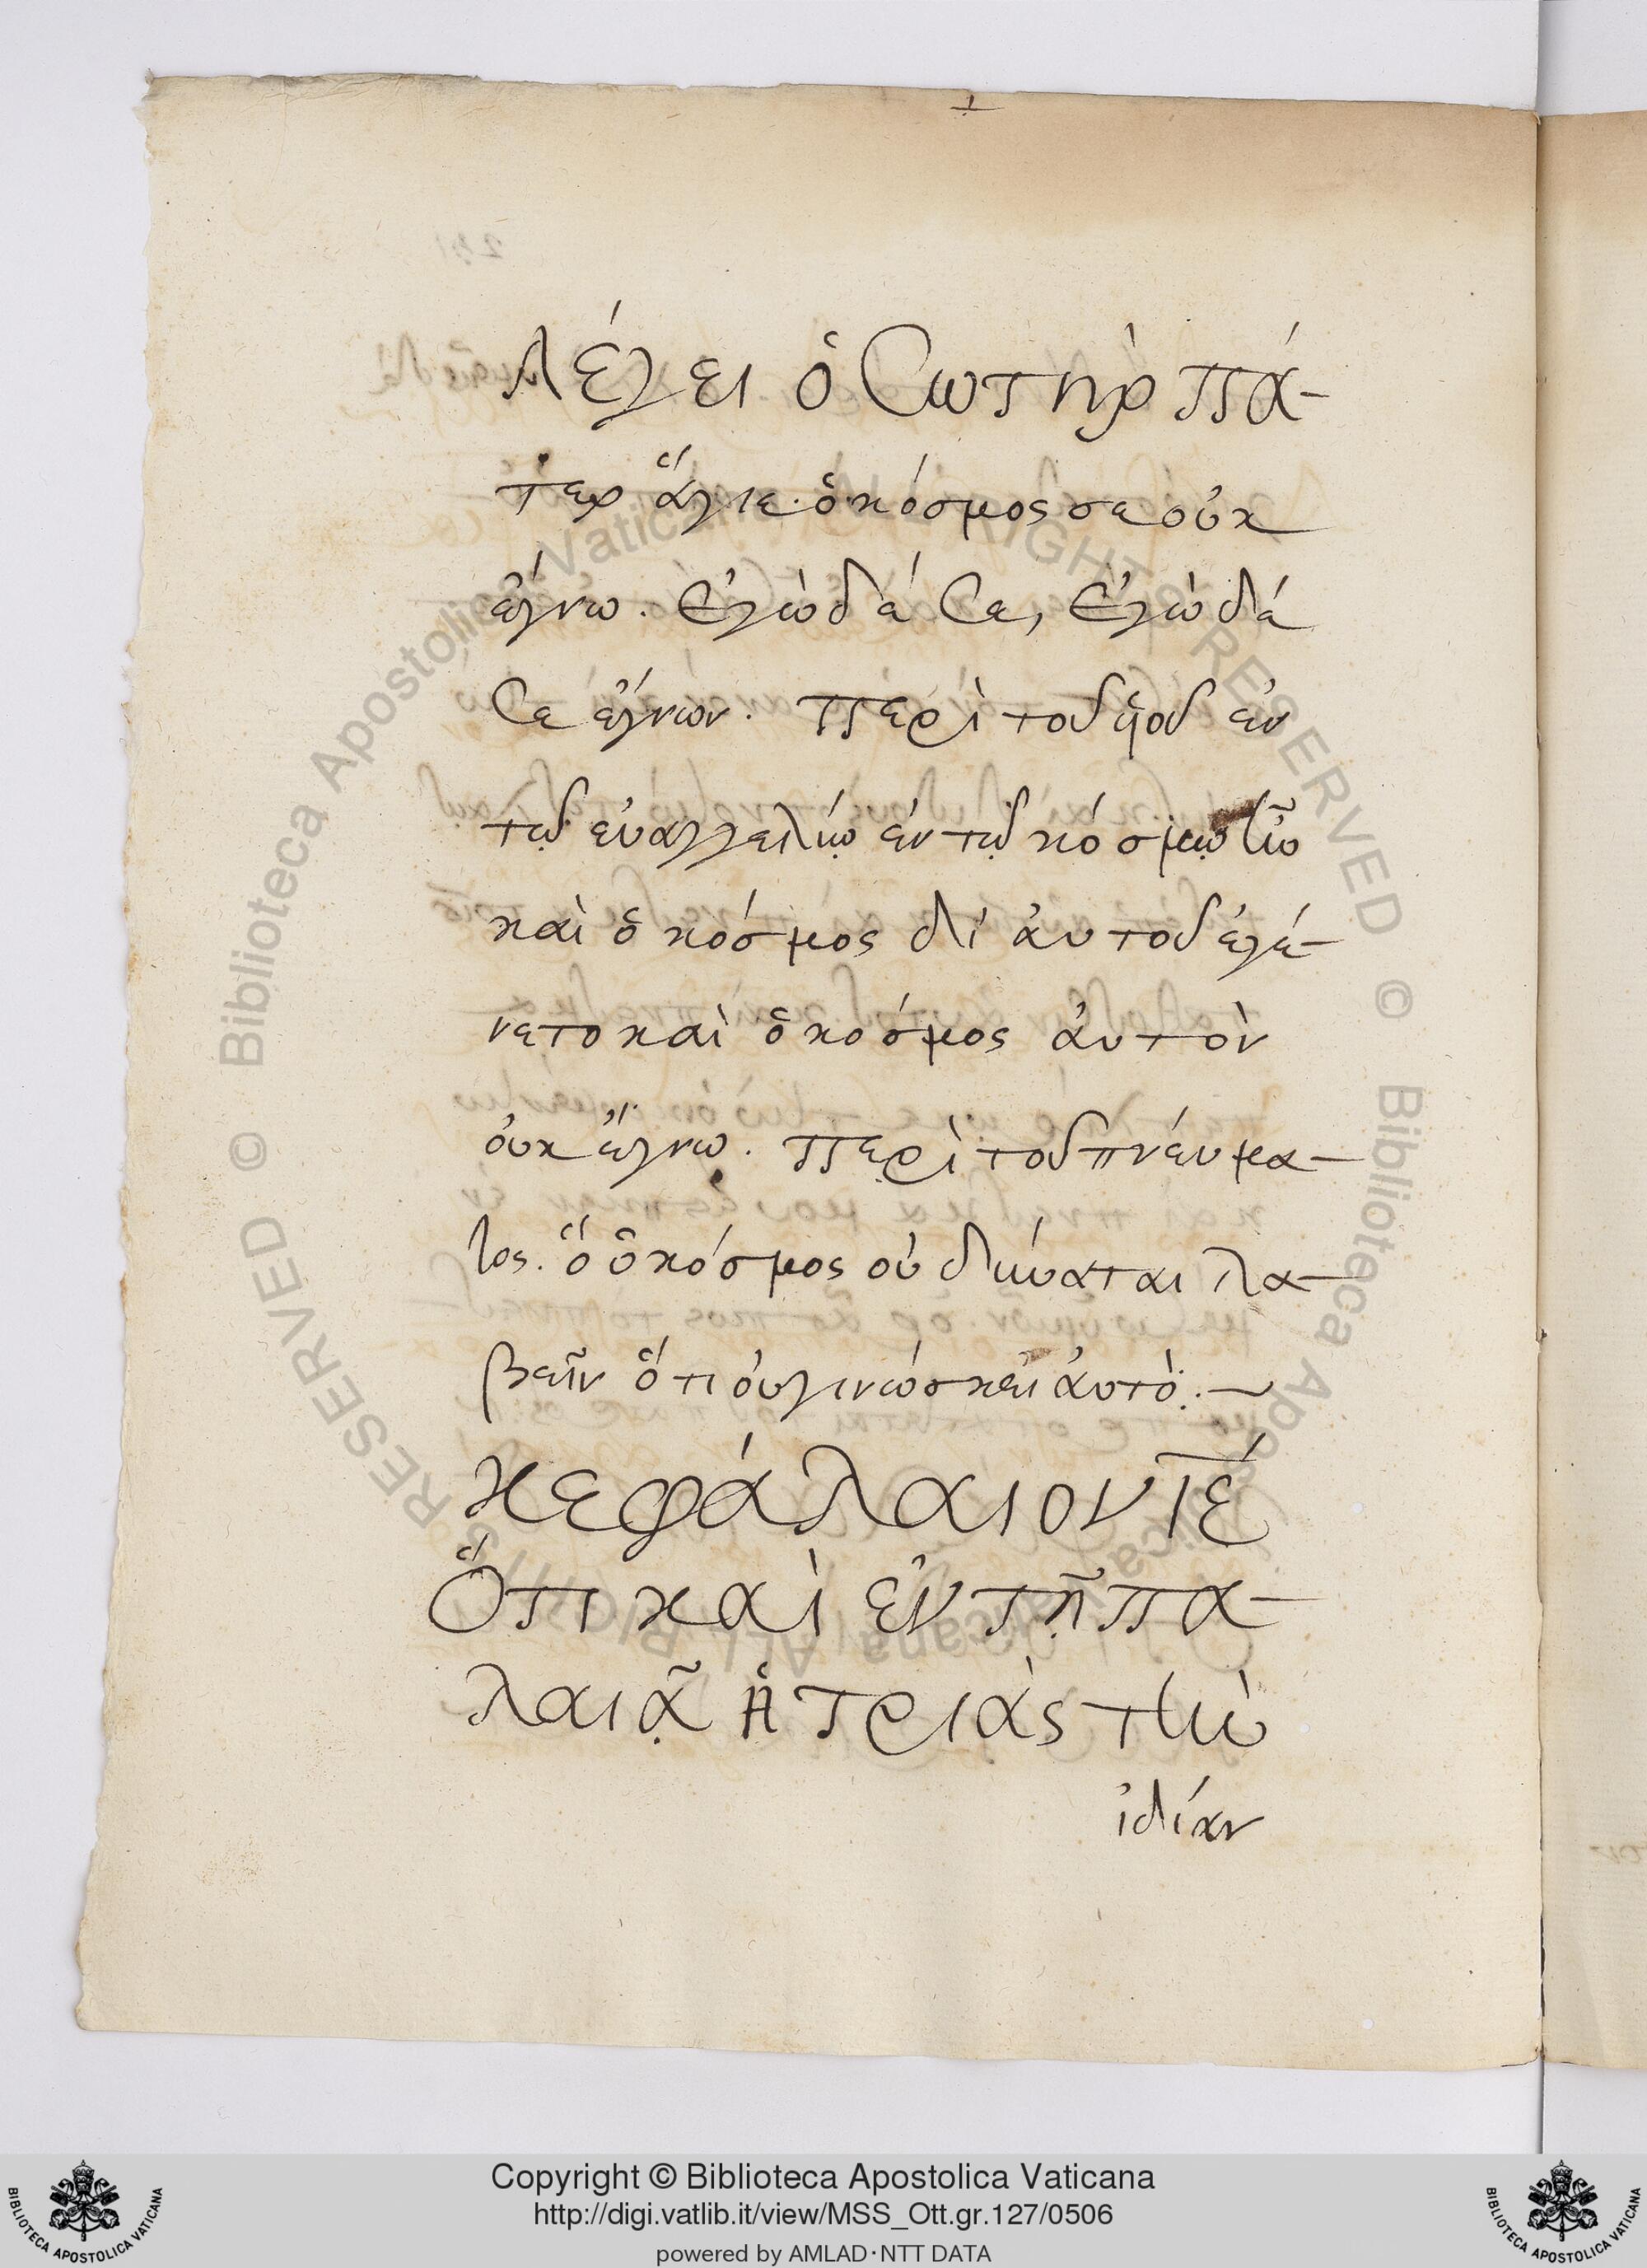 λέγει ὁ Σωτὴρ πά-
τερ ἅγιε· ὁ κόσμος σε οὐκ
ἔγνω. Ἐγὼ δέ σε, Ἐγὼ δέ
σε ἔγνων. Περὶ τοῦ υἱοῦ ἐν
τῷ εὐαγγελίῳ ἐν τῷ κόσμῳ ἦν
καὶ ὁ κόσμος δι' ἀυτοῦ ἐγέ-
νετο καὶ ὁ κόσμος ἀυτὸν
ὀυκ ἔγνω. Περὶ τοῦ πνέυμα-
τος. ὅ ὁ κόσμος οὐ δύναται λα-
βεῖν ὅτι ὀυ γινώσκει ἀυτό:. ~
κεφάλαιον ιέ
Ὅτι καὶ ἐν τῇ πα-
λαιᾷ ἡ τριὰς τὴν
ἰδίαν
© Biblioteca Apostolica Vaticana ALL RIGHTS RESERVED © Biblioteca Apostolica Vaticana ALL RIGHTS RESERVED
Copyright © Biblioteca Apostolica Vaticana
http://digi.vatlib.it/view/MSS_Ott.gr.127/0506
powered by AMLAD·NTT DATA
BIBLIOTECA APOSTOLICA VATICANA
BIBLIOTECA APOSTOLICA VATICANA